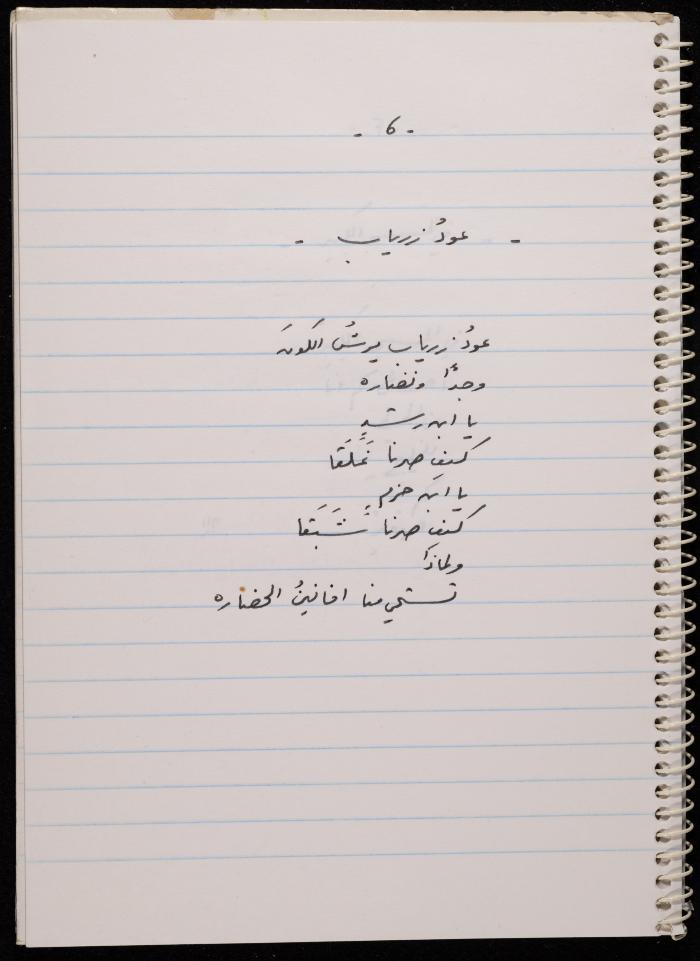 - 6 -
- عودُ زرياب -
عودُ زرياب يرشُ الكونَ
وجدًا ونضاره
يا ابن رشدٍ
كيف صرنا غَلَقا
يا ابن حزمٍ
كيف صرنا شَبَقا
ولماذا
تستحي منا افانينُ الحضاره